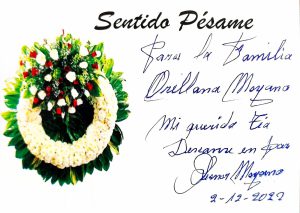 Sentido Pésame
Para la Familia
Orellana Moyano
Mi querida Tía
Descanse en Paz
Moyano
2-12-2022